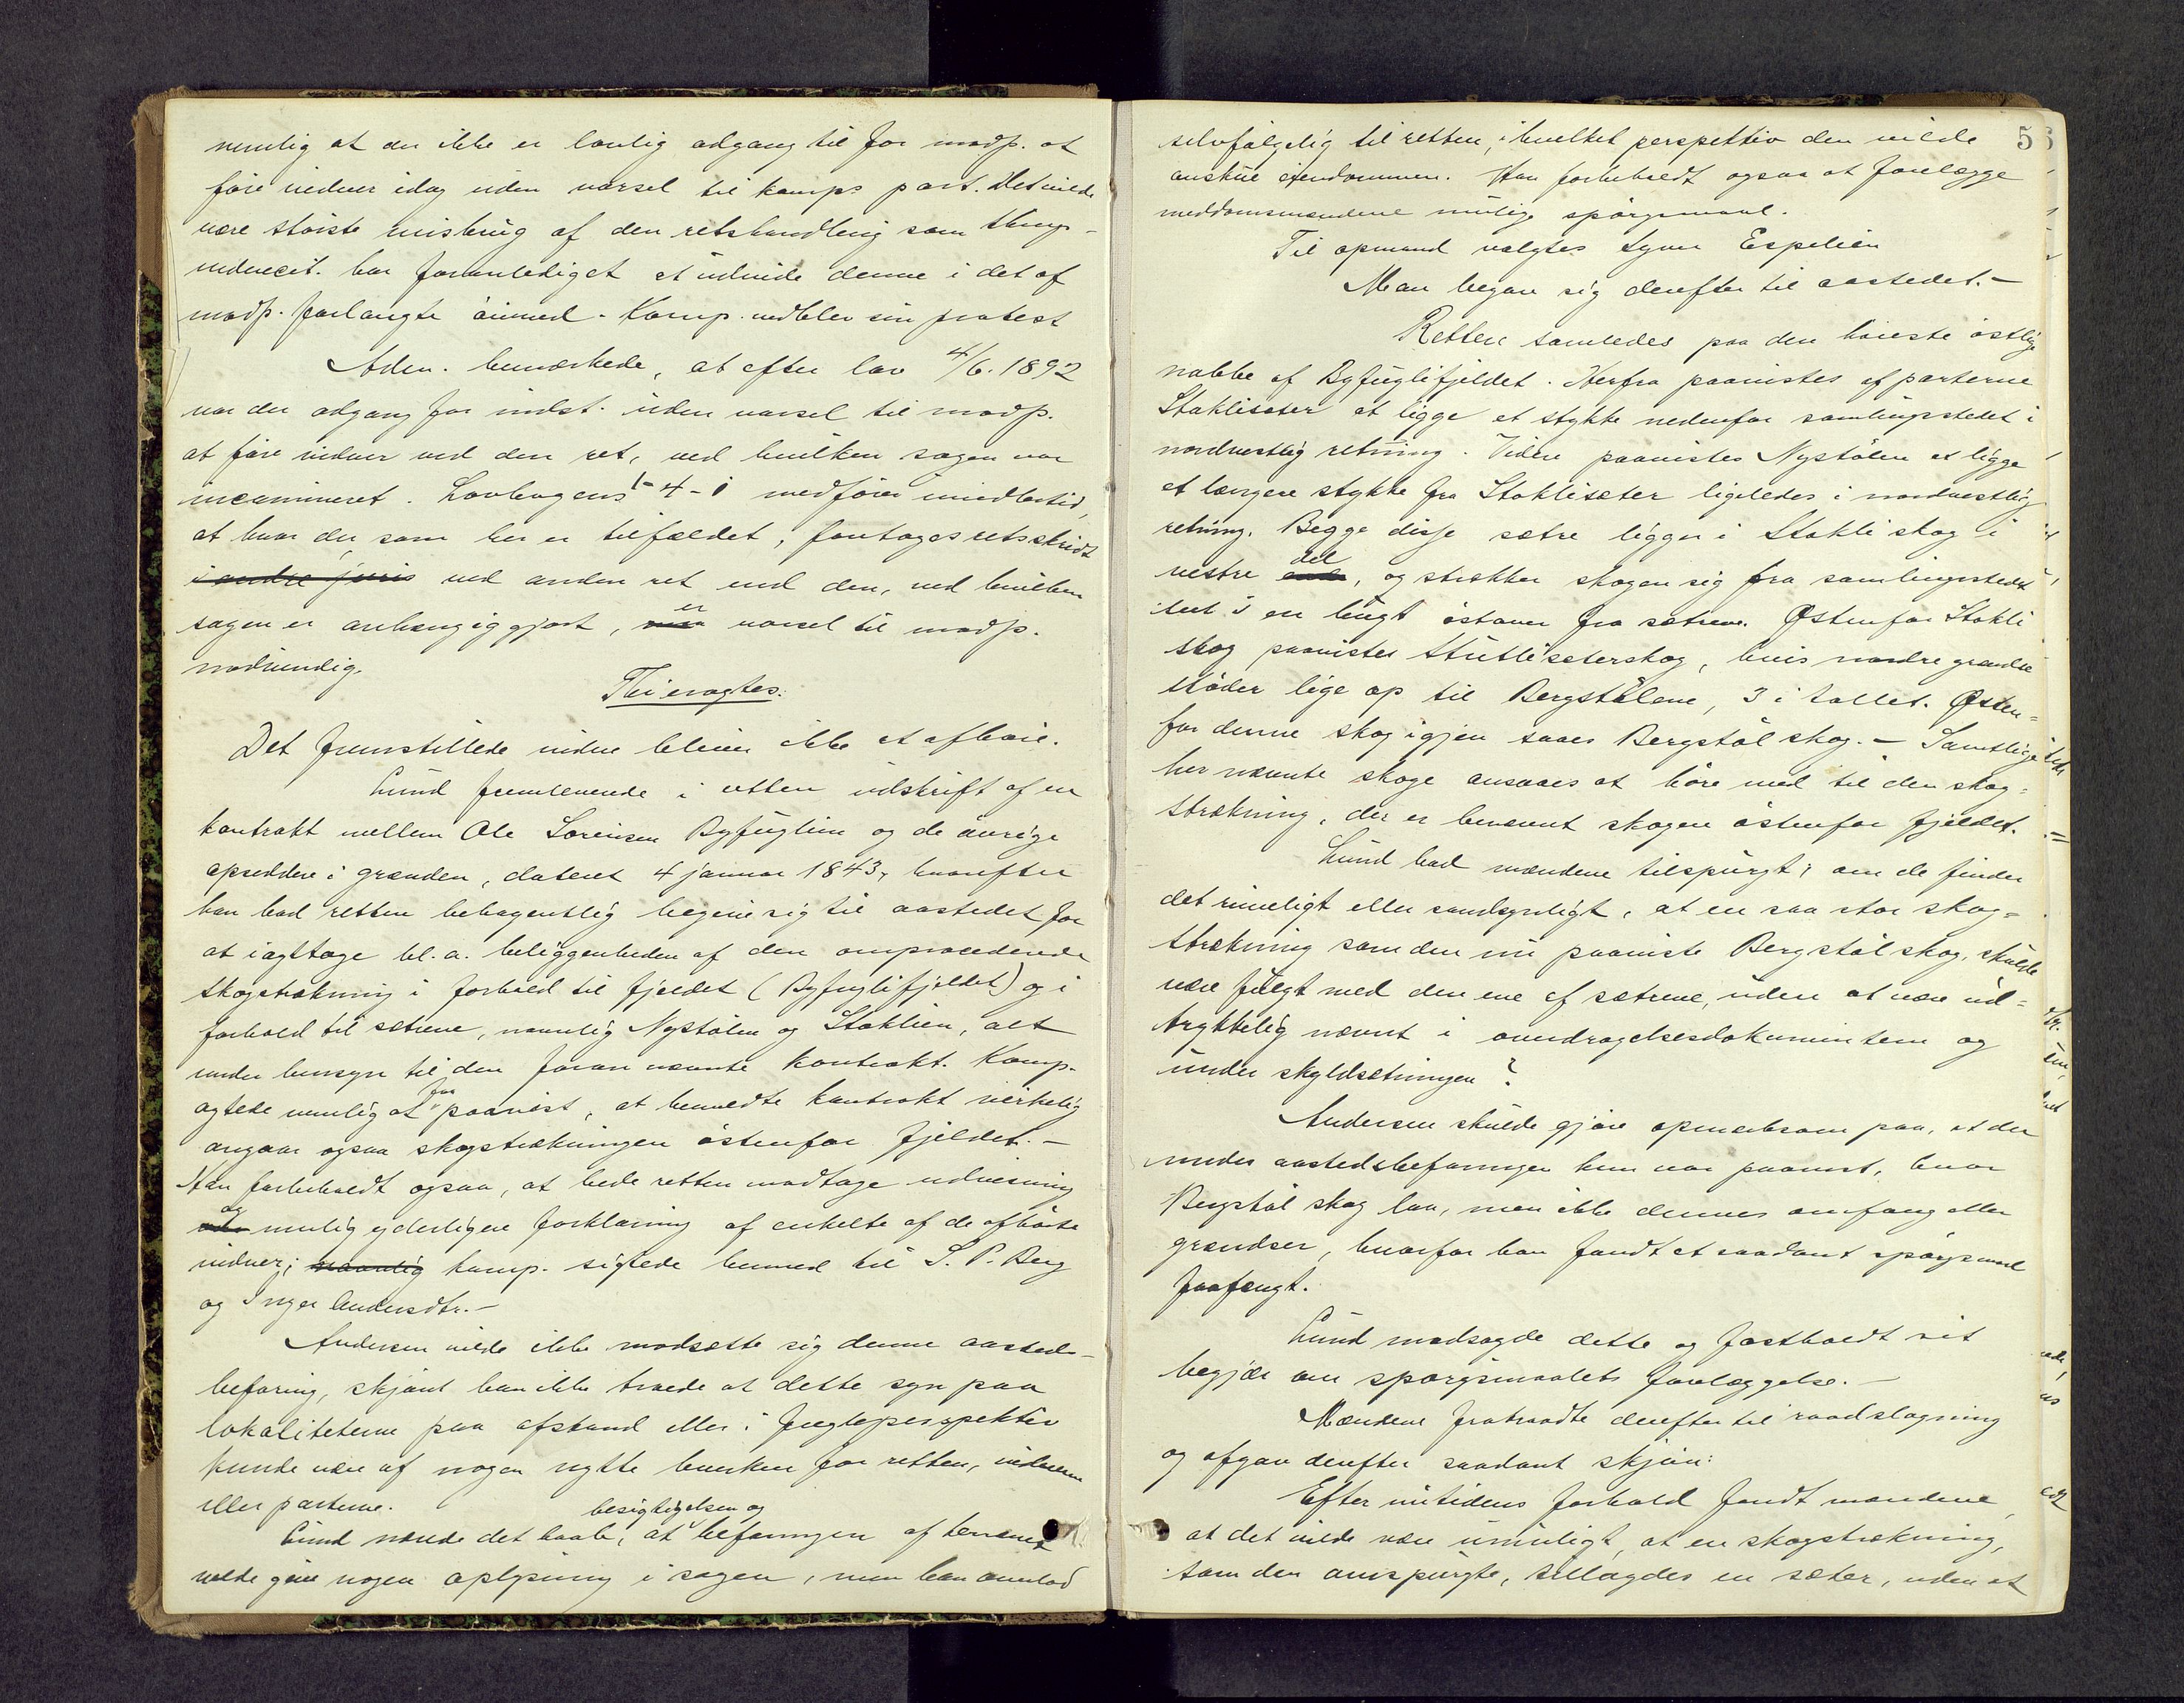 nemlig at der ikke er lovlig adgang til for modp. at
føre vidner idag uden varsel til komps part. Det vilde
være største misbrug af den retshandling som
har foranlediget at udvide denne i det af
modp. forlangte øiemed. Komp. vedblev sin protest
Aden. bemærkede, at efter lov 4/6. 1892
var der adgang for indst. uden varsel til modp.
at føre vidner ved den ret, ved hvilken sagen var
incamineret. Lovbogens 1-4-1 medfører imidlertid,
at hvor der som her er tilfældet, foretages retsskridt
ved anden ret end den, ved hvilken
sagen er anhængiggjort, er varsel til modp.
nødvendig.
Thi eragtes:
Det fremstillede vidne bliver ikke at afhøre.
Lund fremleverede i retten udskrift af en
kontrakt mellem Ole Sorensen Byfuglien og de øvrige
opsiddere i grænden, dateret 4 januar 1843, hvorefter
han bad retten behagentlig begive sig til aastedet for
at iagttage bl. a. beliggenheden af den omprocederede
skogstrækning i forhold til fjeldet (Byfuglifjeldet) og i
forhold til sætrene, navnlig Nystølen og Staklien, alt
under hensyn til den foran nævnte kontrakt. Komp.
agtede nemlig at faa paavist, at bemeldte kontrakt virkelig
angaar ogsaa skogstrækningen østenfor fjeldet. –
Han forbeholdt ogsaa, at bede retten modtage udvisning
og mulig yderligere forklaring af enkelte af de afhørte
vidner; navnlig komp. sigtede hermed til S. P. Berg
og Inger Andersdtr. –
Andersen vilde ikke modsætte sig denne aasteds-
befaring, skjønt han ikke troede at dette syn paa
lokaliteterne paa afstand eller i fugleperspektiv
kunde være af nogen nytte hverken for retten, vidnerne
eller parterne.
Lund nærede det haab, at besigtigelsen og befaringen af terrænet
vilde give nogen oplysning i sagen, men han overlod
53
selvfølgelig til retten, i hvilket perspektiv den vilde
anskue eiendommen. Han forbeholdt ogsaa at forelægge
meddomsmændene mulige spørgsmaal.
Til opmand valgtes Syver Espelien
Man begav sig derefter til aastedet. –
Retten samledes paa den høieste østlige
nabbe af Byfuglifjeldet. Herfra paavistes af parterne
Staklisæter at ligge et stykke nedenfor samlingsstedet i
nordvestlig retning. Videre paavistes Nystølen at ligge
et længere stykke fra Staklisæter ligeledes i nordvestlig
retning. Begge disse sætre ligger i Stakli skog i
vestre del, og strækker skogen sig fra samlingsstedet
seet i en bugt østover fra sætrene. Østenfor Stakli
skog paavistes Stutlisæterskog, hvis nordre grændse
støder lige op til Bergstølene, 3 i tallet. Østen-
for denne skog igjen saaes Bergstøl skog. – Samtlige
her nævnte skoge ansaaes at høre med til den skog-
strækning, der er benævnt skogen østenfor fjeldet.
Lund bad mændene tilspurgt: om de finder
det rimeligt eller sandsynligt, at en saa stor skog-
strækning som den nu paaviste Bergstøl skog, skulde
være fulgt med den ene af sætrene, uden at være ud-
trykkelig nævnt i overdragelsesdokumentene og
under skyldsætningen?
Andersen skulde gjøre opmerksom paa, at der
under aastedsbefaringen kun var paavist, hvor
Bergstøl skog laa, men ikke dennes omfang eller
grændser, hvorfor han fandt et saadant spørgsmaal
forfængt.
Lund modsagde dette og fastholdt sit
begjær om spørgsmaalets forelæggelse. –
Mændene fratraadte derefter til raadslagning
og afgav derefter saadant skjøn:
Efter nutidens forhold fandt mændene,
at det vilde være umuligt, at en skogstrækning,
som den omspurgte, tillagdes en sæter, uden at